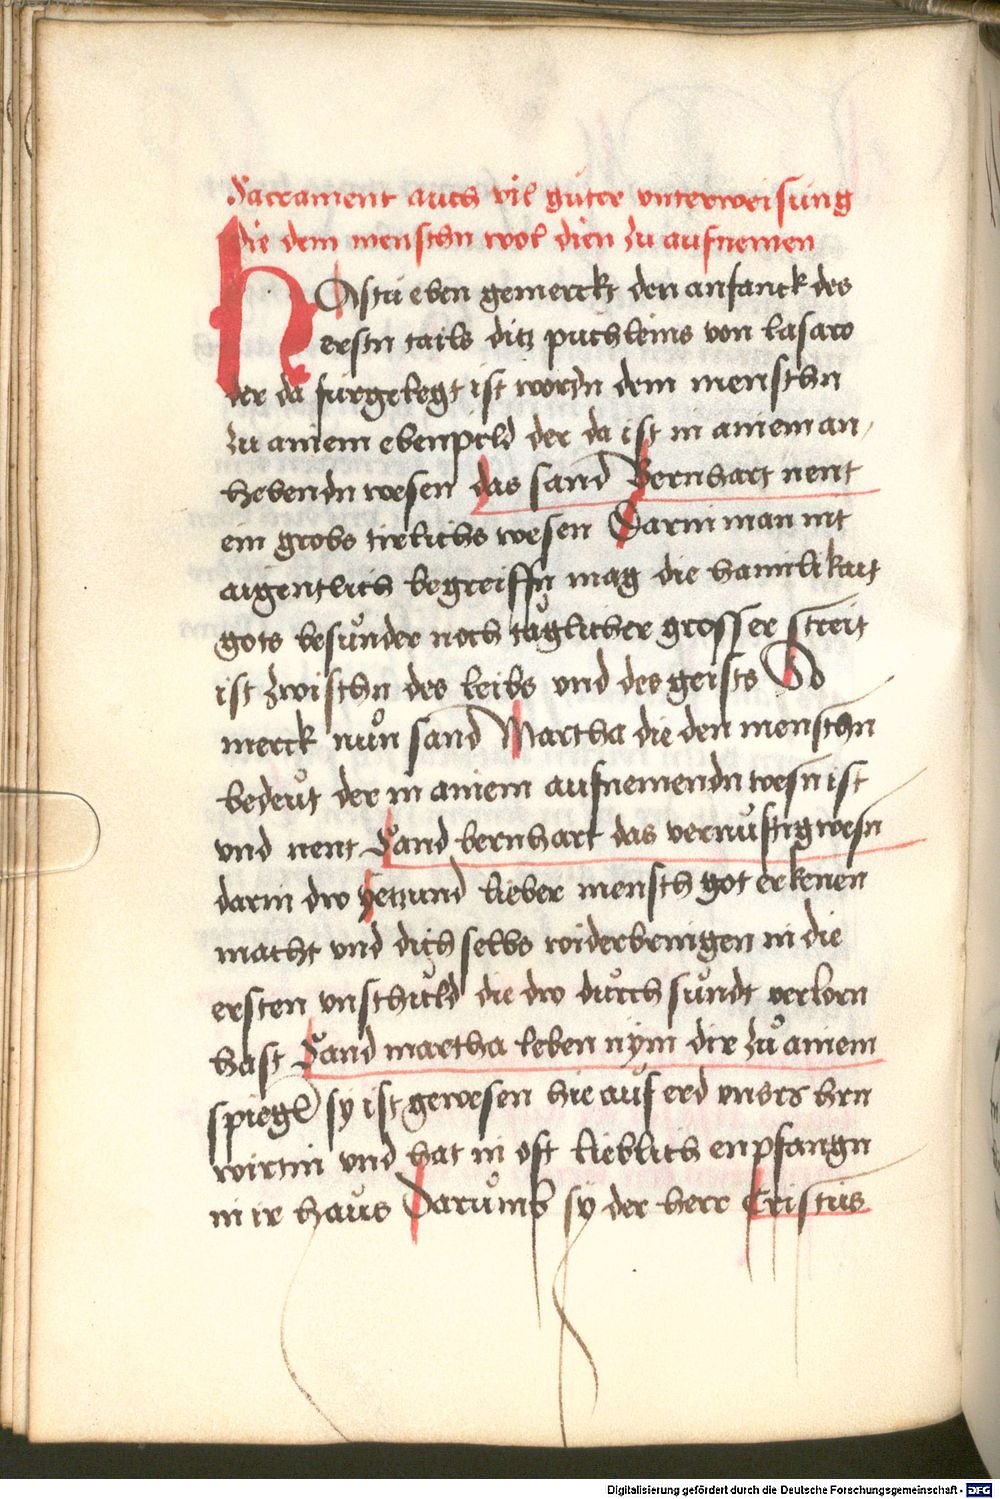 Sacrament auch vil guter vnterweisung
die dem menschn wol dien zu aufnemen
HAstu eben gemerckt den anfanck des
erstn tails ditz puchleins von lasaro
der da furgelegt ist wordn dem menschn
zu ainem ebenpild der da ist in ainem an,
hebendn wesen das sand Bernhart nent
ein grobs tirlichs wesen Darin man nit
aigentlich begreiffn mag die haimlikait
gots besunder noch taglicher grosser streit
ist zwischn des leibs vnd des geists So
merck nun sand Martha die den menschn
bedeut der in ainem aufnemendn wesn ist
vnd nent Sand bernhart das vernuftig wesn
darin dw yetzund lieber mensch got erkenen
macht vnd dich selbs widerbringen in die
ersten vnschuld die dw durch sundt verlorn
hast Sand martha leben nym dir zu ainem
spiegl sy ist gewesen hie auf erd vnsers hrn
wirtin vnd hat in oft lieblich enpfangn
in ir haus Darumb sy der herr Cristus
Digitalisierung gefördert durch die Deutsche Forschungsgemeinschaft - DFG